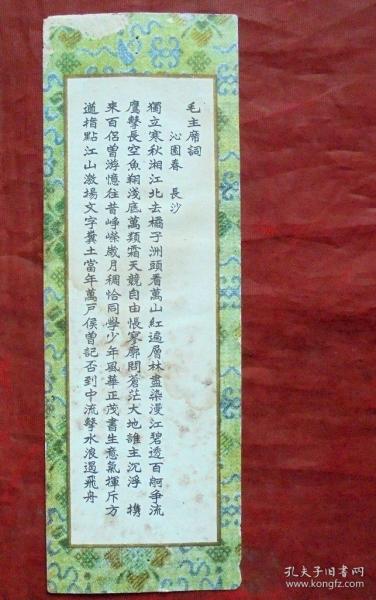 毛主席詞
沁園春 長沙
獨立寒秋湘江北去橘子洲頭看萬山紅遍層林盡染漫江碧透百舸爭流
鷹擊長空魚翔淺底萬類霜天競自由悵寥廓問蒼茫大地誰主沉浮 携
來百侶曾游憶往昔崢嶸歲月稠恰同學少年風華正茂書生意氣揮斥方
遒指點江山激揚文字糞土當年萬戶侯曾記否到中流擊水浪遏飛舟
孔夫子旧书网
www.kongfz.com